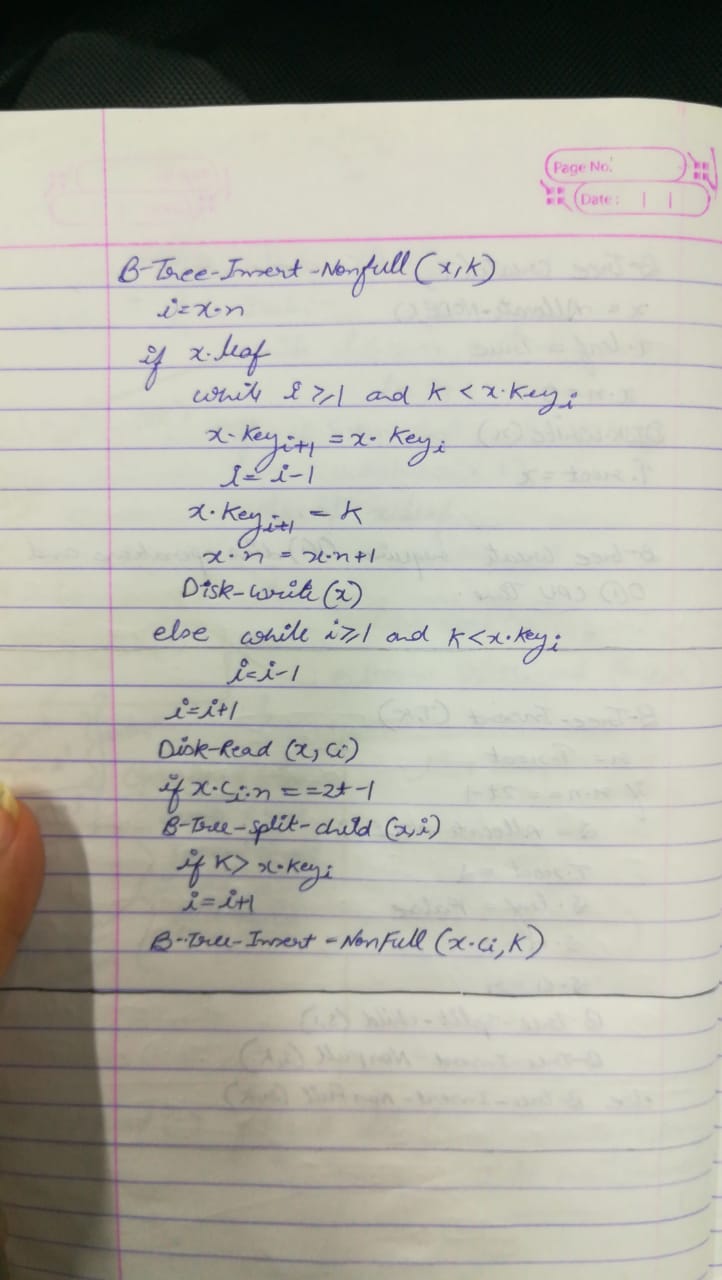 Page No.
Date:
B-Tree-Insert-Nonfull (x,k)
i=x.n
if x.leaf
while i≥1 and k < x.key_i
x.key_{i+1} = x.key_i
i = i-1
x.key_{i+1} = k
x.n = x.n+1
Disk-write (x)
else while i≥1 and k<x.key_i
i=i-1
i=i+1
Disk-Read (x, ci)
if x.ci.n == 2t-1
B-Tree-split-child (x,i)
if k> x.key_i
i=i+1
B-Tree-Insert-NonFull (x.ci, k)